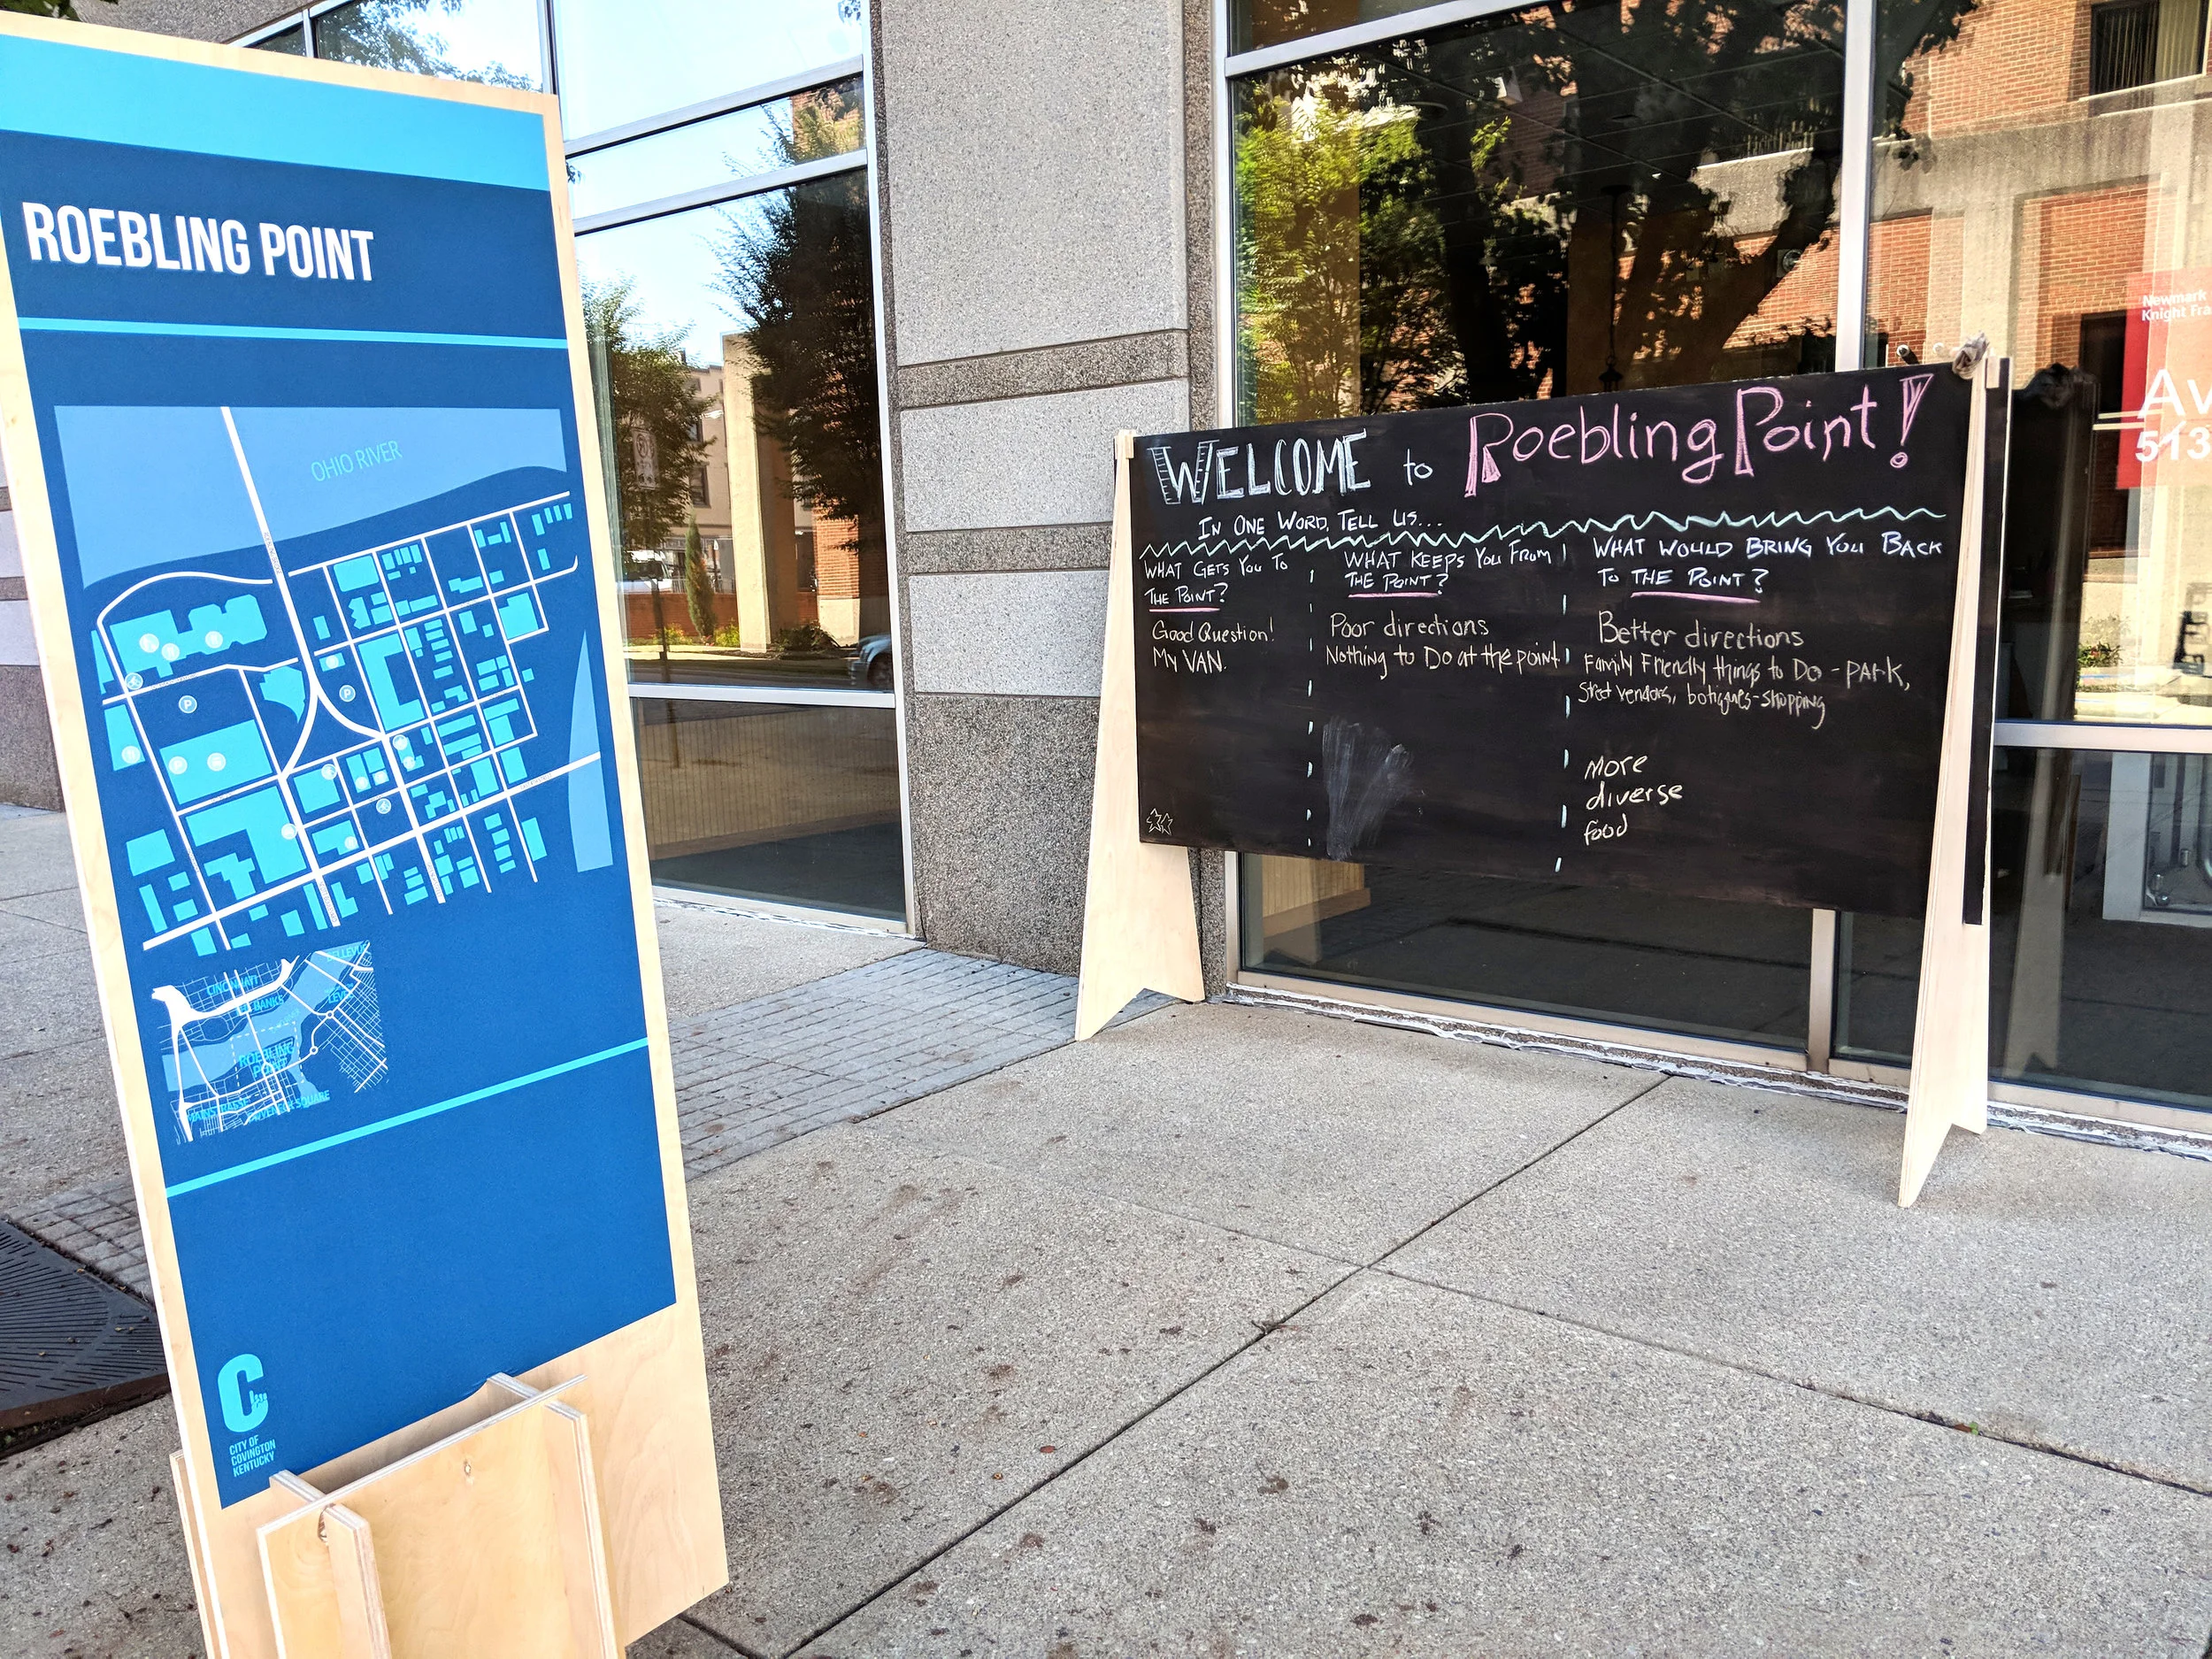 ROEBLING POINT
OHIO RIVER
P
P
CINCINNATI
BELLEVUE
BANKS
ROEBLING
POINT
CITY OF
COVINGTON
KENTUCKY
WELCOME to Roebling Point!
IN ONE WORD, TELL US...
WHAT GETS YOU TO
THE POINT?
Good Question!
My VAN.
WHAT KEEPS YOU FROM
THE POINT?
Poor directions
Nothing to Do at the point
WHAT WOULD BRING YOU BACK
TO THE POINT?
Better directions
Family Friendly things to Do - park,
Street vendors, botiques-shopping
More
diverse
food
Newmark
Knight Fra
Av
513